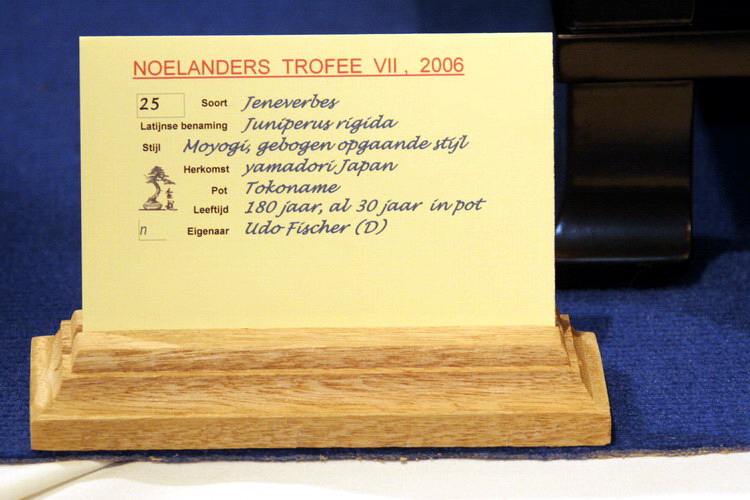 NOELANDERS TROFEE VII, 2006
25 Soort Jeneverbes
Latijnse benaming Juniperus rigida
Stijl Moyogi, gebogen opgaande stijl
Herkomst yamadori Japan
Pot Tokoname
Leeftijd 180 jaar, al 30 jaar in pot
n Eigenaar Udo Fischer (D)